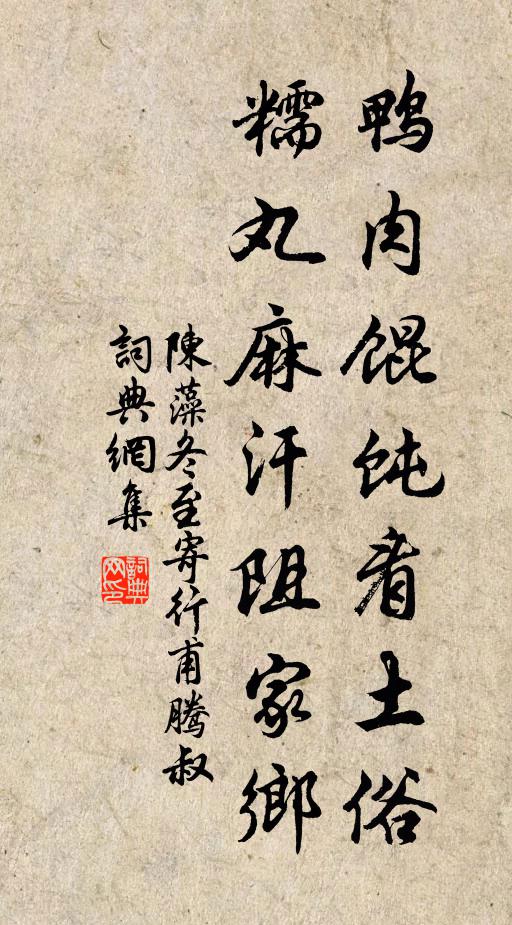 鴨肉餛飩看土俗
糯丸麻汗阻家鄉
陳藻冬至寄行甫騰叔
詞典網集
詞典网印